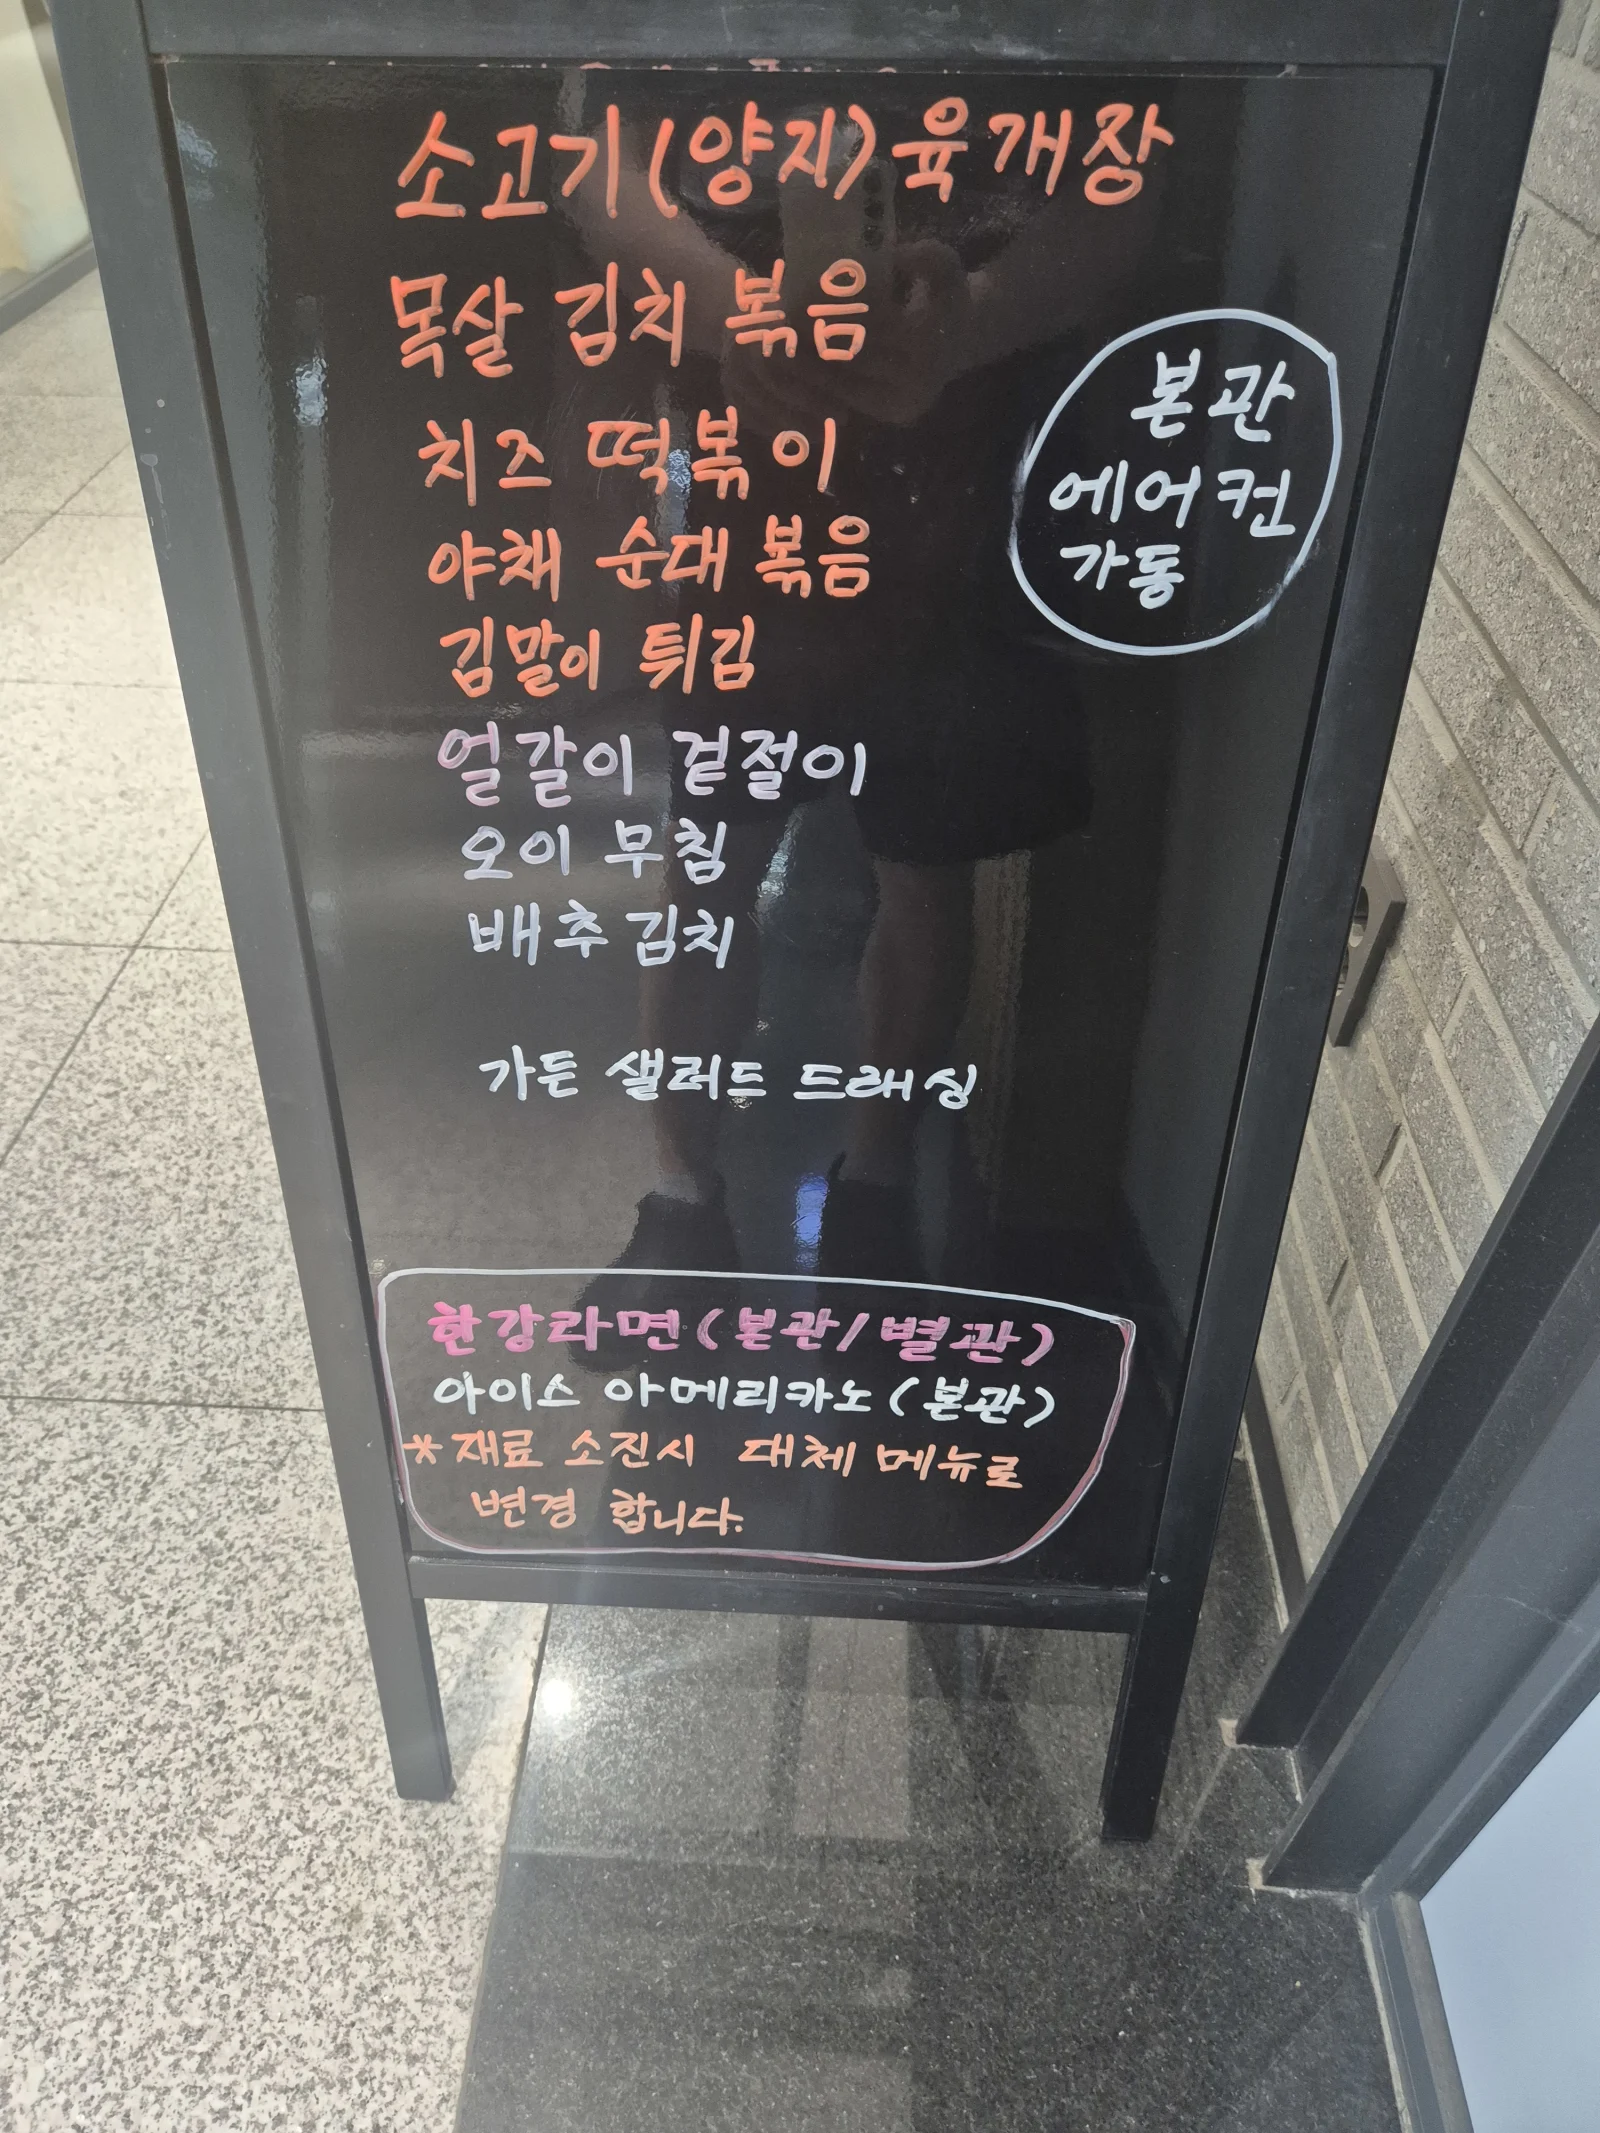 소고기(양지)육개장
목살 김치 볶음
치즈 떡볶이
야채 순대 볶음
김말이 튀김
얼갈이 겉절이
오이 무침
배추김치
가든 샐러드 드래싱
본관
에어컨
가동
한강라면(본관/별관)
아이스 아메리카노(본관)
*재료 소진시 대체 메뉴로
변경 합니다.